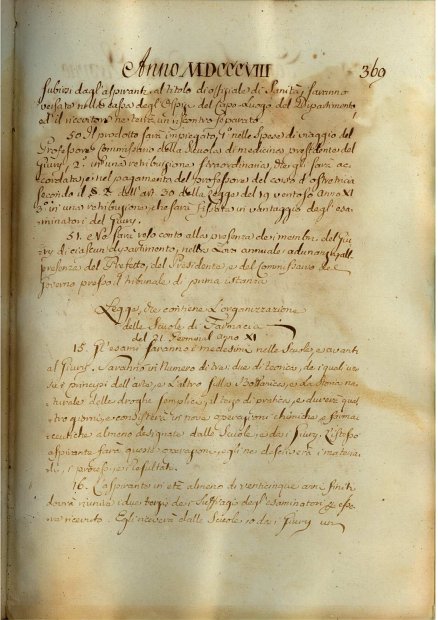 Anno MDCCCVIII 369
subirsi dagl'aspiranti al titolo di offiziale di Sanità, saranno
versate nella cassa degl'Ospizj del Capo-Luogo del Dipartimento
ed il riscotone ne terrà un iscontro separato.
50. Il prodotto sarà impiegato, 1.° nelle Spese di viaggio del
Professore commissario della Scuola di medicina presidente del
Giury, 2.° in una retribuzione straordinaria, che gli sarà ac=
cordata, e nel pagamento del professore del corso d'ostetricia
secondo il §. 2. dell'art. 30 della Legge del 19 ventoso anno XI
3.° in una retribuzione, che sarà fissata in vantaggio degl'esa=
minatori del Giury.
51. Ne sarà reso conto alla presenza dei membri del Giu
ry di ciascun dipartimento, nella Loro annuale adunanza, all
presenza del Prefetto, del Presidente, e del Commissario del
Governo presso il tribunale di prima istanza
Legge, che contiene l'organizzazione
delle Scuole di Farmacia
del 21 Germinal anno XI
15. Gl'esami saranno i medesimi nelle Scuole, e avanti
al Giury. Saranno in Numero di tre: due di teorica, de i quali un
su i principi dell'arte, e l'altro sulla Bottanica, e la storia na=
turale delle droghe semplici, il terzo di pratica, e durerà quat
tro giorni, e consisterà in nove operazioni chimiche, e farma=
ceutiche almeno designate dalle Scuole, e dai Giury. L'istesso
aspirante farà queste operazioni, egli ne descriverà i materia=
li, i processi, e i resultati.
16. L'aspirante in età almeno di venticinque anni finiti
dovrà riunire i due terzi dei Suffragj degl'esaminatori, per esse
re ricevuto. Egli riceverà dalle Scuole, o dai Giury un